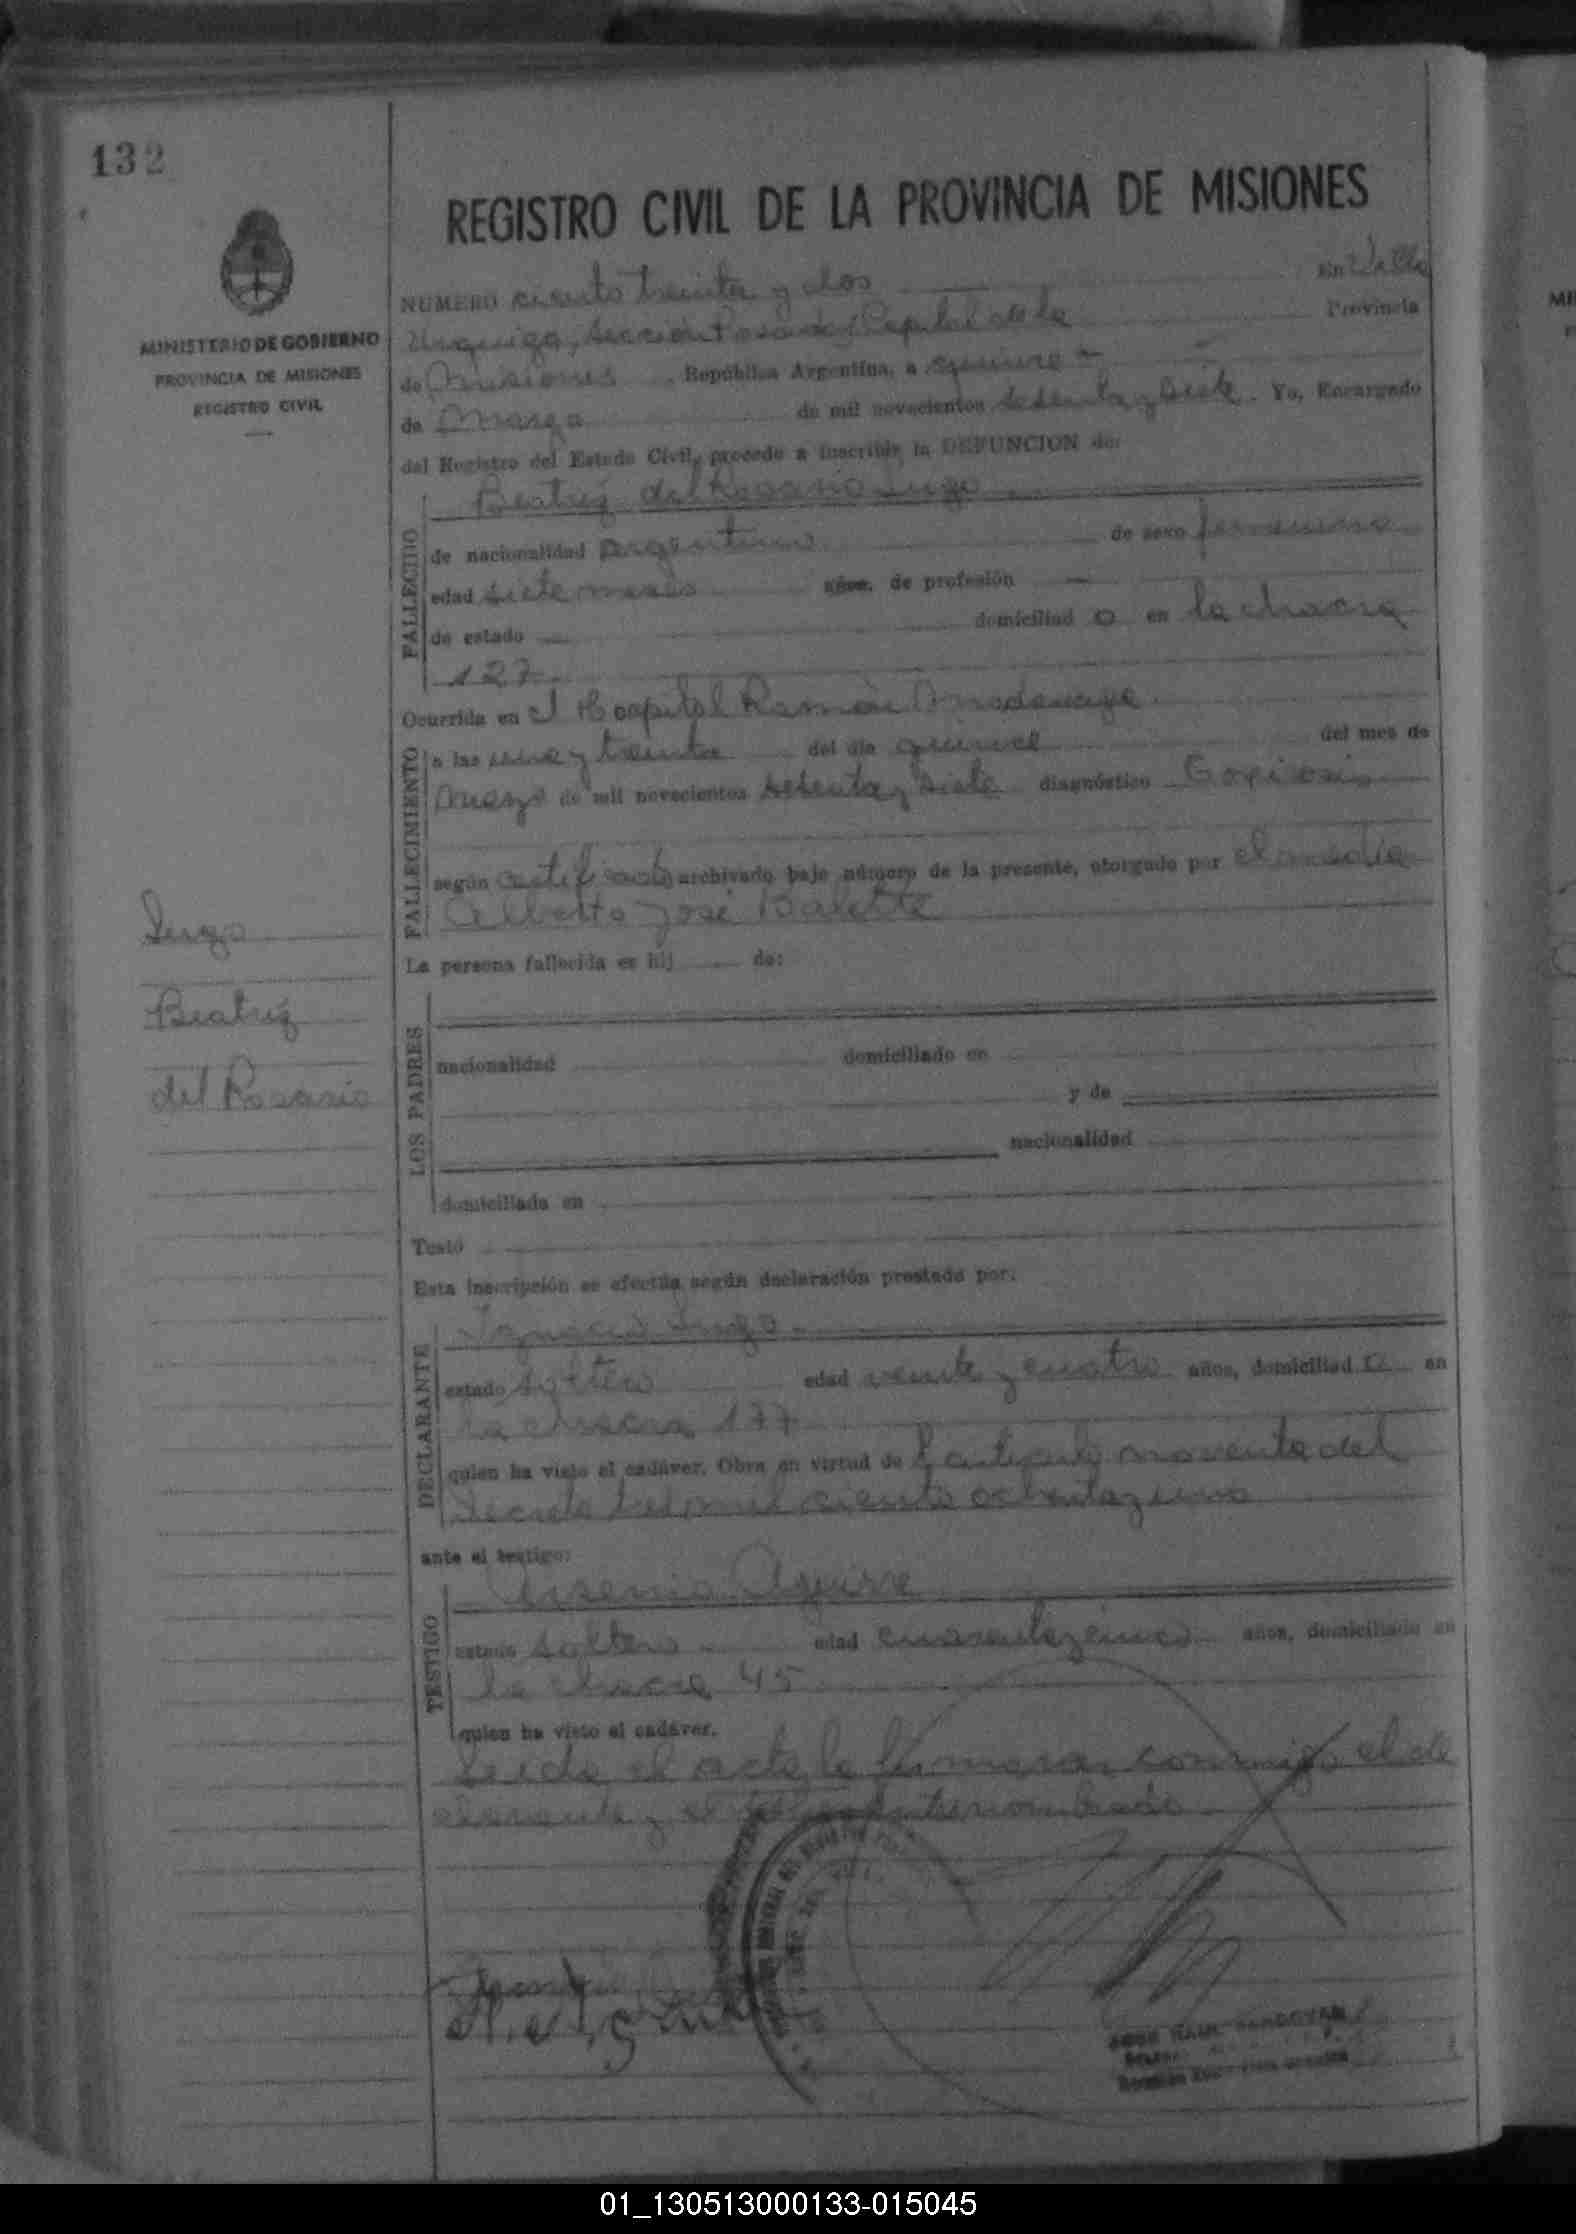 132
REGISTRO CIVIL DE LA PROVINCIA DE MISIONES
MINISTERIO DE GOBIERNO
PROVINCIA DE MISIONES
REGISTRO CIVIL
NUMERO ciento treinta y dos en Villa
Urquiza, Sección Posadas, Capital de la Provincia
de Misiones República Argentina, a quince
de Marzo de mil novecientos setenta y siete. Yo, Encargado
del Registro del Estado Civil, procedo a inscribir la DEFUNCION de:
Beatriz del Rosario Lugo
FALLECIDO
de nacionalidad argentina de sexo femenino
edad siete meses años, de profesión —
de estado — domiciliad o en la chacra
127
Ocurrida en el Hospital Ramón Madariaga
FALLECIMIENTO
a las una y treinta del día quince del mes de
Marzo de mil novecientos setenta y siete diagnóstico
según certificado archivado bajo número de la presente, otorgado por el médico
Alberto José
La persona fallecida es hij de:
LOS PADRES
nacionalidad domiciliado en
y de
nacionalidad
domiciliada en
Testó
Esta inscripción se efectúa según declaración prestada por:
Ignacio Lugo
DECLARANTE
estado soltero edad veinte y cuatro años, domiciliad o en
la chacra 177
quien ha visto el cadáver. Obra en virtud de l artículo noventa del
decreto ciento ochenta y uno
ante el testigo:
Arsenio Aguirre
TESTIGO
estado soltero edad cuarenta y cinco años, domiciliado en
la chacra 45
quien ha visto el cadáver.
Leída el acta la firmaran conmigo el de
clarante y el
Lugo
Beatriz
del Rosario
JOSE RAUL SANDOVAL
01_130513000133-015045